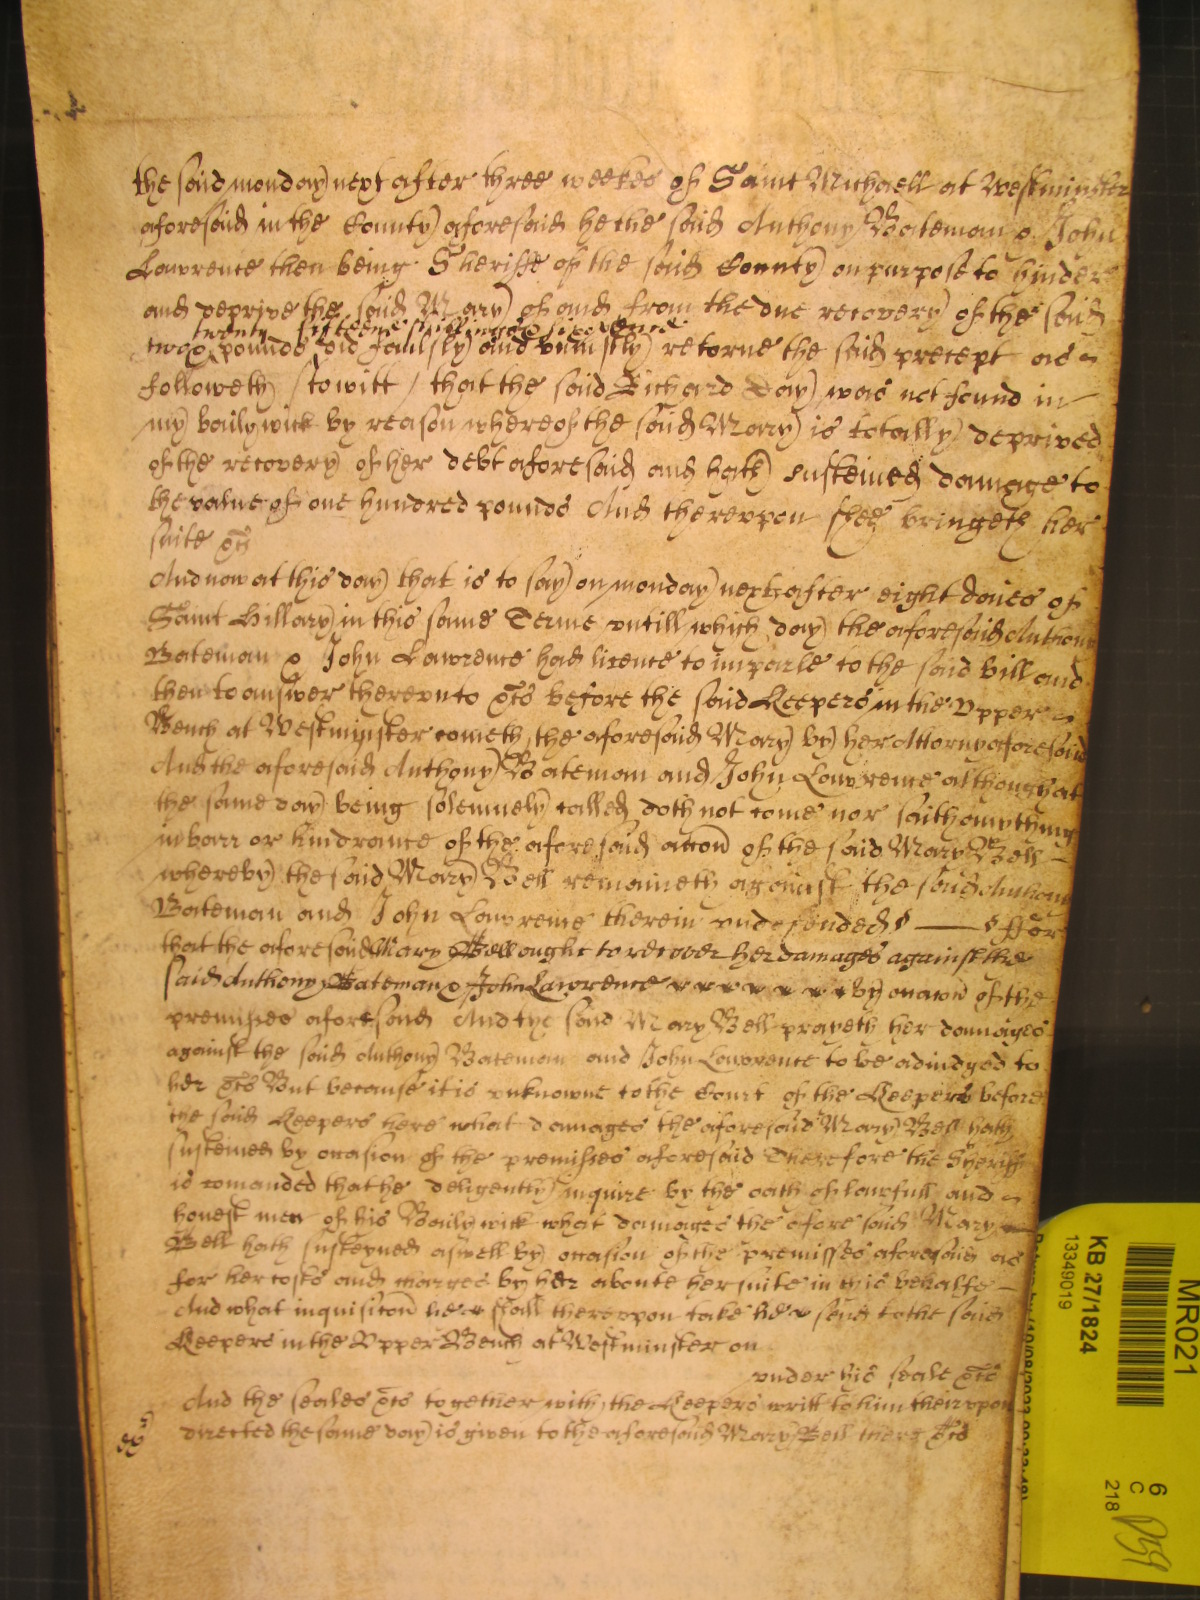 the said monday next after three weekes of Saint Michaell at Westminster
aforesaid in the County aforesaid he the said Anthony Bateman & John
Lawrence then being Sheriffe of the said County on purpose to hinder
and deprive the said Mary of and from the due recovery of the said
twenty fifteene shillings & sixe pence
two pounds did faulsly and uniustly returne the said precept as
followeth /towitt/ that the said Richard Day was not found in
my bailywick by reason whereof the said Mary is totally deprived
of the recovery of her debt aforesaid and hath susteined damage to
the value of one hundred pounds And thereupon shee bringeth her
suite &c
And now at this day that is to say on monday next after eight daies of
Saint Hillary in this same Terme untill which day the aforesaid Anthony
Bateman & John Lawrence had licence to imparle to the said bill and
then to answer thereunto &c before the said Keepers in the Upper
Bench at Westminster cometh the aforesaid Mary by her Attorny aforesaid
And the aforesaid Anthony Bateman and John Lawrence although at
the same day being solemnely called doth not come nor saith anything
in barr or hindrance of the aforesaid accon of the said Mary Bell
whereby the said Mary Bell remaineth against the said Anthony
Bateman and John Lawrence therein undefended ffor
that the aforesaid Mary Bell ought to recover her damages against the
said Anthony Bateman & John Lawrence by occasion of the
premisses aforesaid And the said Mary Bell prayeth her damages
against the said Anthony Bateman and John Lawrence to be adiudged to
her &c But because it is unknowne to the Court of the Keepers before
the said Keepers here what damages the aforesaid Mary Bell hath
susteined by occasion of the premisses aforesaid Therefore the Sheriff
is comanded that he deligently inquire by the oath of lawfull and
honest men of his Bailywick what damages the aforesaid Mary
Bell hath susteyned aswell by occasion of the premisses aforesaid as
for her costs and charges by her aboute her suite in this behalfe
And what inquisicon he shall thereupon take he send to the said
Keepers in the Upper Bench at Westminster on
under his seale &c
And the seales &c together with the Keepers writt to him thereupon
directed the same day is given to the aforesaid Mary Bell there &c
MR021
KB 27/1824
13349019
6
C
218